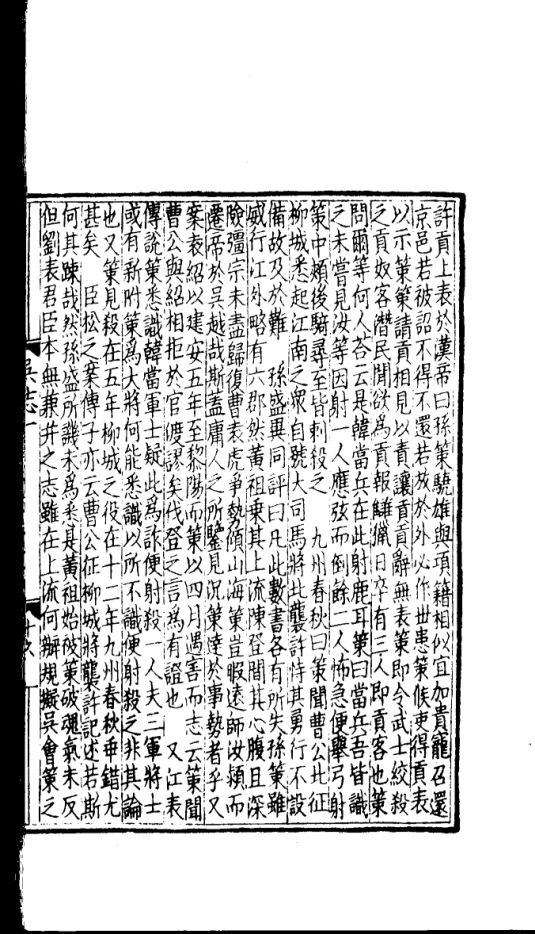 許貢上表於漢帝曰孫策驍雄與項籍相似宜加貴寵召還
京邑若被詔不得不還若放於外必作世患策候吏得貢表
以示策策請貢相見以責讓貢貢辭無表策即令武士絞殺
之貢奴客潛民間欲爲貢報讎獵日卒有三人即貢客也策
問爾等何人荅云是韓當兵在此射鹿耳策曰當兵吾皆識
之未嘗見汝等因射一人應弦而倒餘二人怖急便舉弓射
策中頰後騎尋至皆刺殺之　九州春秋曰策聞曹公北征
柳城悉起江南之衆自號大司馬將北襲許恃其勇行不設
備故及於難　孫盛異同評曰凡此數書各有所失孫策雖
威行江外略有六郡然黃祖乗其上流陳登間其心腹且深
險彊宗未盡歸復曹袁虎争勢傾山海策豈暇遠師汝潁而
遷帝於吳越哉斯蓋庸人之所鑒見況策達於事勢者乎又
案袁紹以建安五年至黎陽而策以四月遇害而志云策聞
曹公與紹相拒於官渡謬矣伐登之言爲有證也　又江表
傳說策悉識韓當軍士疑此爲詐便射殺一人夫三軍將士
或有新附策爲大將何能悉識以所不識便射殺之非其論
也又策見殺在五年柳城之役在十二年九州春秋乖錯尤
甚矣　臣松之案傅子亦云曹公征柳城將襲許記述若斯
何其踈哉然孫盛所譏未爲悉是黃祖始被策破魂氣未反
但劉表君臣本無兼并之志雖在上流何辦規擬吳會策之
吳志一